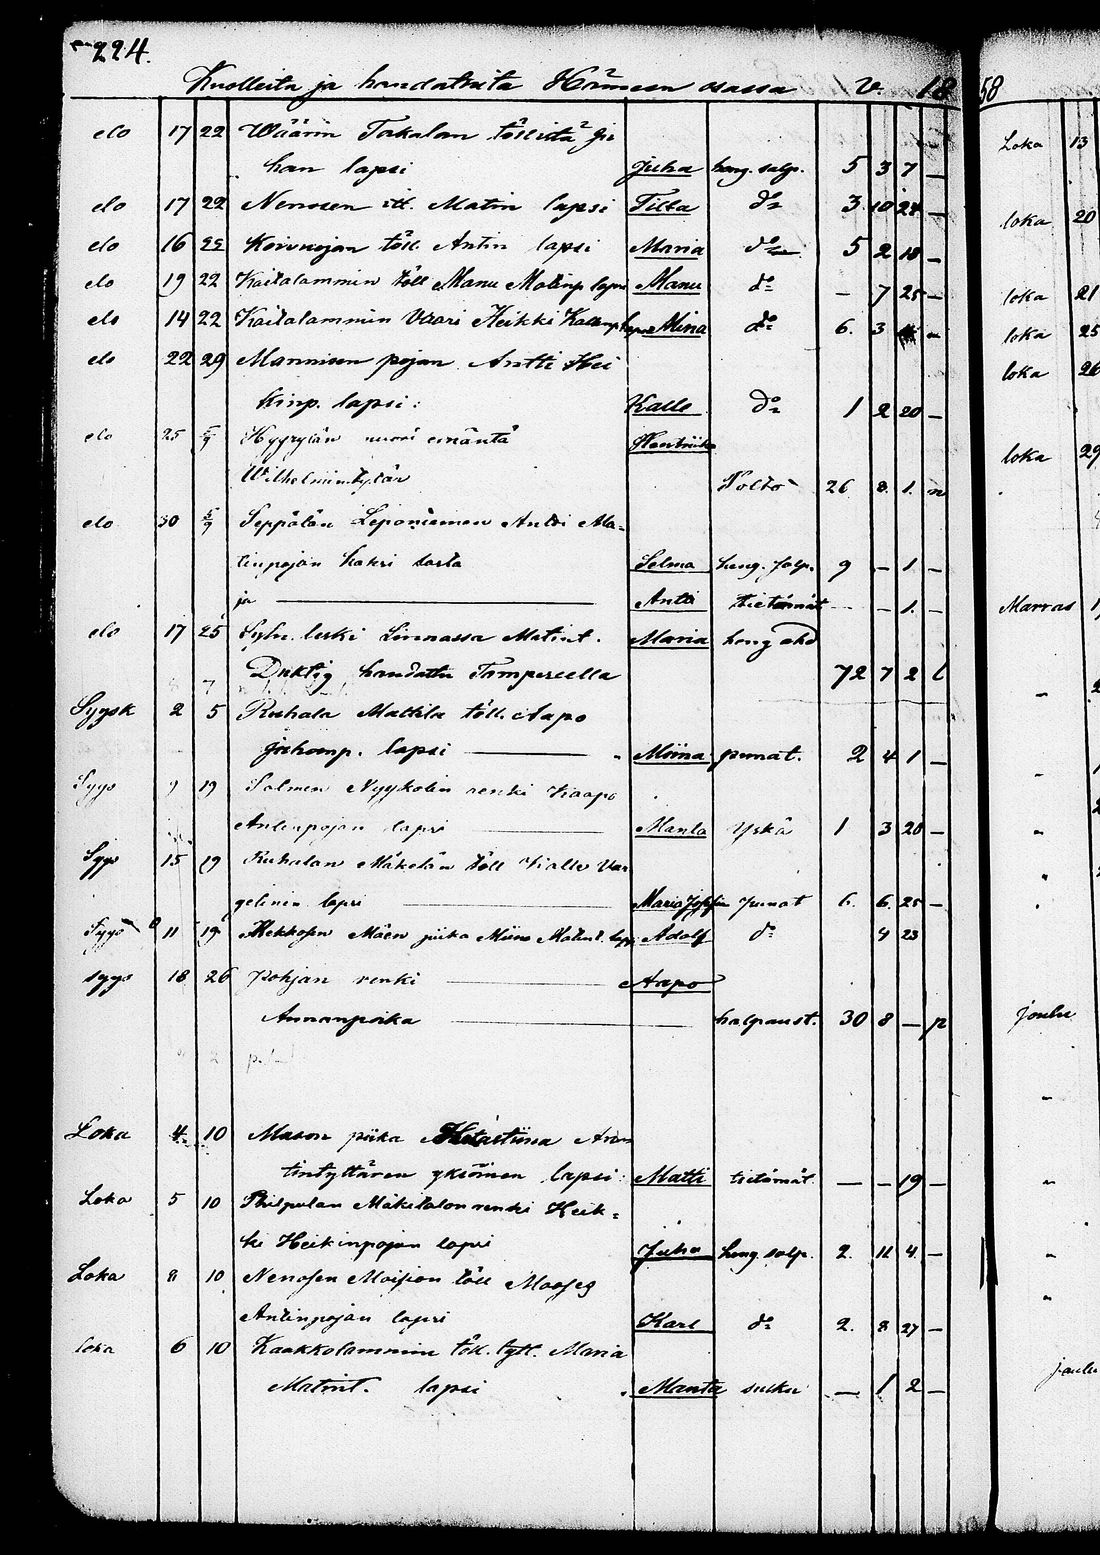 224.
Kuolleita ja haudatuita Hämeen osassa V. 18 58
elo 17 22 Wäärin Takalan töllistä Ju
han lapsi Juha heng. salp. 5 3 7 —
elo 17 22 Nenosen itl. Matin lapsi Tilta do 3 10 24 —
elo 16 22 Koivuojan töll Antin lapsi Maria do 5 2 18 —
elo 19 22 Kaitalammin töll Manu Matinp lapsi Manu do — 7 25 —
elo 14 22 Kaitalammin Vaari Heikki Kallenp lapsi Miina do 6. 3 —
elo 22 29 Mannisen pojan Antti Hei
kinp. lapsi: Kalle do 1 2 20 —
elo 25 5/9 Hyyrylän nuori emäntä
Wilhelmintytär Polto 26 8. 1. n
elo 30 5/9 Seppälän Leponiemen Antti Ma-
tinpojan kaksi lasta Selma heng. salp. 9 — 1 —
ja Antti tietämät — 1. —
elo 17 25 leski Linnassa Matint. Maria heng ahd
haudattu Tampereella 72 7 2 l
Syysk 2 5 Ruhala Mattila töll. Aapo
Juhonp. lapsi Miina punat. 2 4 1 —
Syys 9 19 Salmen Nyykolin renki Kaapo
Antinpojan lapsi Manta Yskä 1 3 20 —
Syys 15 19 Ruhalan Mäkelän töll Kalle Van
gelinin lapsi Maria Josefin Punat 6. 6. 25 —
Syys 11 19 Mäen piika Miina Matint. lapsi Adolf do 4 23
syys 18 26 Pohjan renki Aapo
Annanpoika halpaust. 30 8 — p
Loka 4 10 Mason piika An
tintyttären yksöinen lapsi Matti tietämät. — — 19 —
Loka 5 10 Philpulan Mäkitalon renki Heik-
ki Heikinpojan lapsi Juha heng. salp. 2. 11 4. —
Loka 8 10 Nenosen Moision töll Mooses
Antinpojan lapsi Karl do 2. 8 27 —
loka 6 10 Kaakkolammin töll. tytt. Maria
Matint. lapsi Manta sukku — 1 2 —
Loka 13
loka 20
loka 21
loka 25
loka 26
loka 29
Marras
joulu
joulu